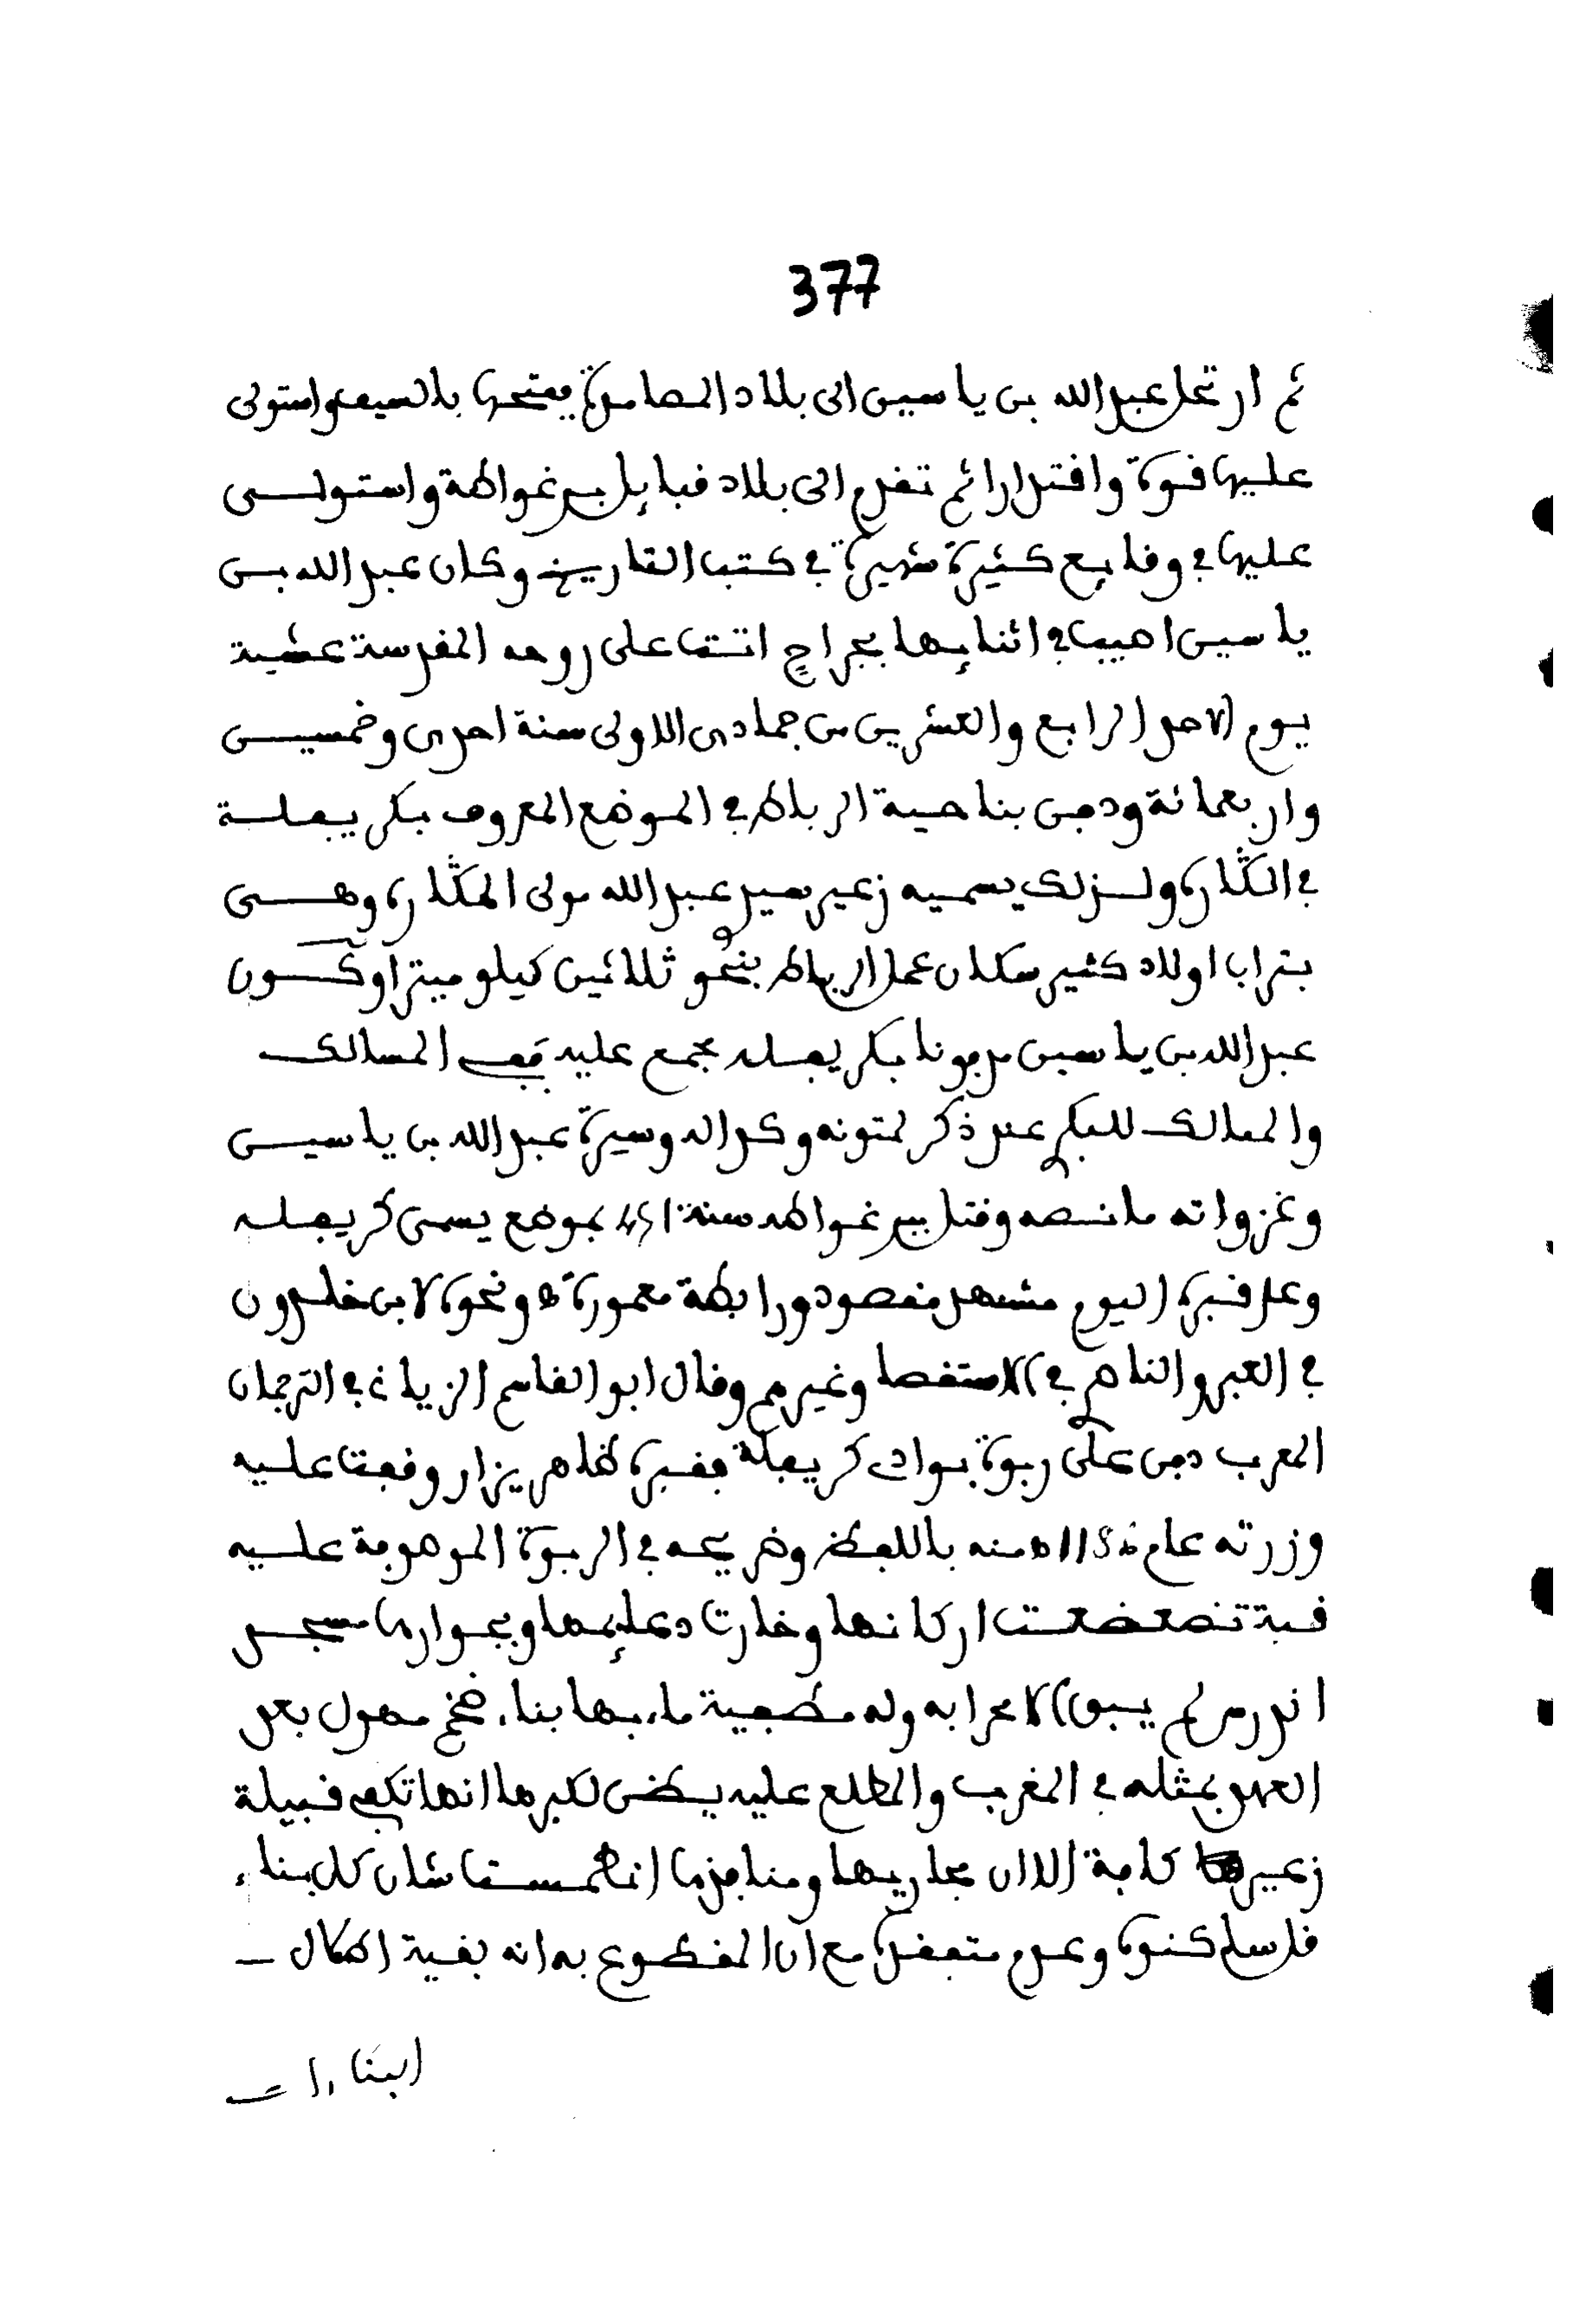 377
ثم ارتحل عبد الله بن ياسين الى بلاد المصامدة ففتحها بالسيف واستولى
عليها قوة واقتدارا ثم تقدم الى بلاد قبايل برغواطة واستولى
عليها في وقايع كثيرة شهيرة في كتب التاريخ وكان عبد الله بن
ياسين اصيب في اثنايها بجراح اتت على روحه المقدسة عشية
يوم الاحد الرابع والعشرين من جمادى الاولى سنة احدى وخمسين
واربعمائة ودفن بناحية الرباط في الموضع المعروف بكريفلة
في الكدارة ولذلك يسميه زعير سيد عبد الله مولى الكدارة وهي
بتراب اولاد كثير سكان عمل الرباط بنحو ثلاثين كيلو ميترا وكون
عبد الله بن ياسين مدفونا بكريفله مجمع عليه ففي المسالك
والممالك للبكري عند ذكر لمتونه وكداله وسيرة عبد الله بن ياسين
وغزواته ما نصه وقتل ببرغواطه سنة 451 بموضع يسمى كريفله
وعلى قبره اليوم مشهد مقصود ورابطة معمورة ه ونحوه لابن خلدون
في العبر والناصري في الاستقصا وغيرهم وقال ابو القاسم الزياني في الترجمان
المعرب دفن على ربوة بوادي كريفلة فقبره ظاهر يزار وقفت عليه
وزرته عام 1186 ه منه باللفظ وضريحه في الربوة الموهومة عليه
قبة تضعضعت اركانها وخارت دعايمها وبجوارها مسجد
اندرس لم يبق الا محرابه وله مطفية ماء بها بناء ضخم مهول بعد
العهد بمثله في المغرب والمطلع عليه يظن لكبرها انها تكفي قبيلة
زعير كافة الا ان مجاريها ومنافذها انطمست شان كل بناء
قل سلم كنوه وعدم متفقده مع ان المقطوع به انه بقية اطلال –
ابناء ا